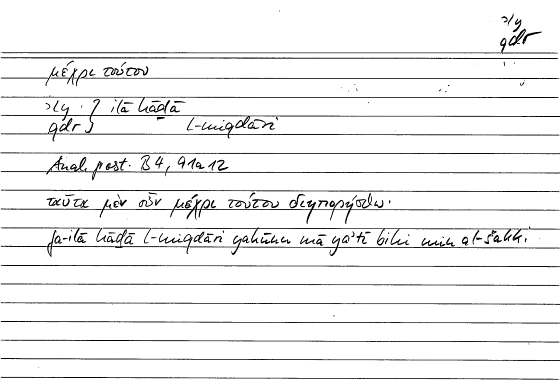 ʾly
qdr
μέχρι τούτου
ʾly } ilā hāḏā
qdr } l-miqdāri
Anal. post. B 4, 91a12
ταῦτα μὲν οὖν μέχρι τούτου διηπορήσθω·
fa-ilā hāḏā l-miqdāri yakūnu mā yaʾtī bihi mina l-šakki.